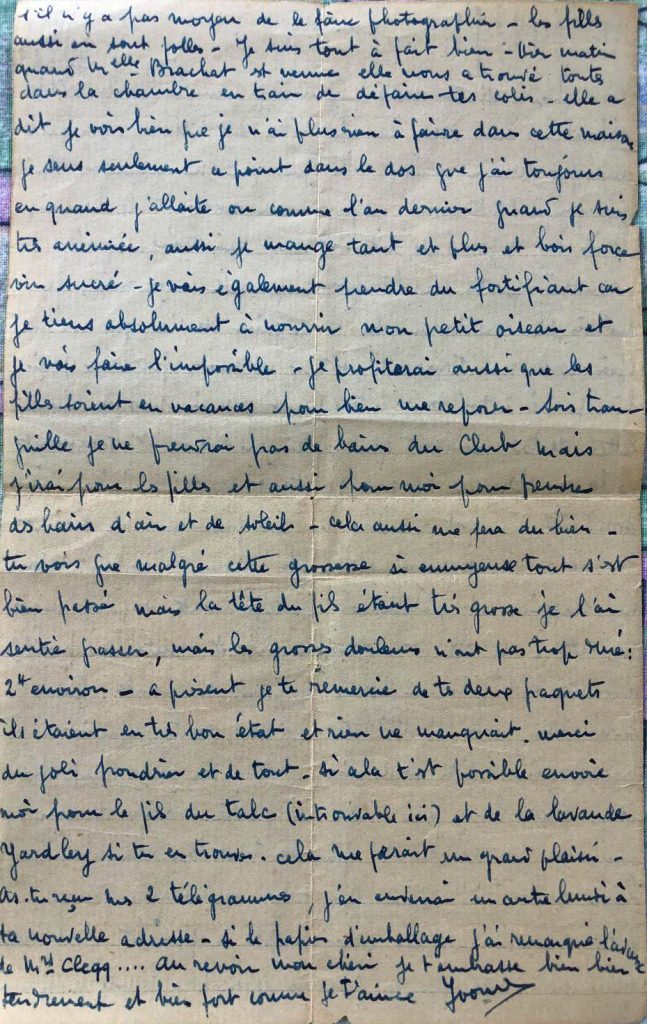 s'il n'y a pas moyen de le faire photographier - les filles
aussi en sont folles - Je suis tout à fait bien - Hier matin
quand Melle Brachat est venue elle nous a trouvé toutes
dans la chambre en train de défaire tes colis - elle a
dit je vois bien que je n'ai plus rien à faire dans cette maison
je sens seulement ce point dans le dos que j'ai toujours
eu quand j'allaite ou comme l'an dernier quand je suis
très anémiée, aussi je mange tant et plus et bois force
vin sucré - je vais également prendre du fortifiant car
je tiens absolument à nourrir mon petit oiseau et
je vais faire l'impossible - je profiterai aussi que les
filles soient en vacances pour bien me reposer - Sois tran-
quille je ne prendrai pas de bains du Club mais
j'irai pour les filles et aussi pour moi pour prendre
des bains d'air et de soleil - cela aussi me fera du bien -
tu vois que malgré cette grossesse si ennuyeuse tout s'est
bien passé mais la tête du fils étant très grosse je l'ai
sentie passer, mais les grosses douleurs n'ont pas trop duré :
2H environ - a présent je te remercie de tes deux paquets
ils étaient en très bon état et rien ne manquait. merci
du joli poudrier et de tout - si cela t'est possible envoie
moi pour le fils du talc (introuvable ici) et de la lavande
Yardley si tu en trouves. cela me ferait un grand plaisir -
As-tu reçu mes 2 télégrammes, j'en enverrai un autre lundi à
ta nouvelle adresse - si le papier d'emballage j'ai remarqué
de Mrs Clegg .... au revoir mon chéri je t'embrasse bien bien
tendrement et bien fort comme je t'aime Yvonne